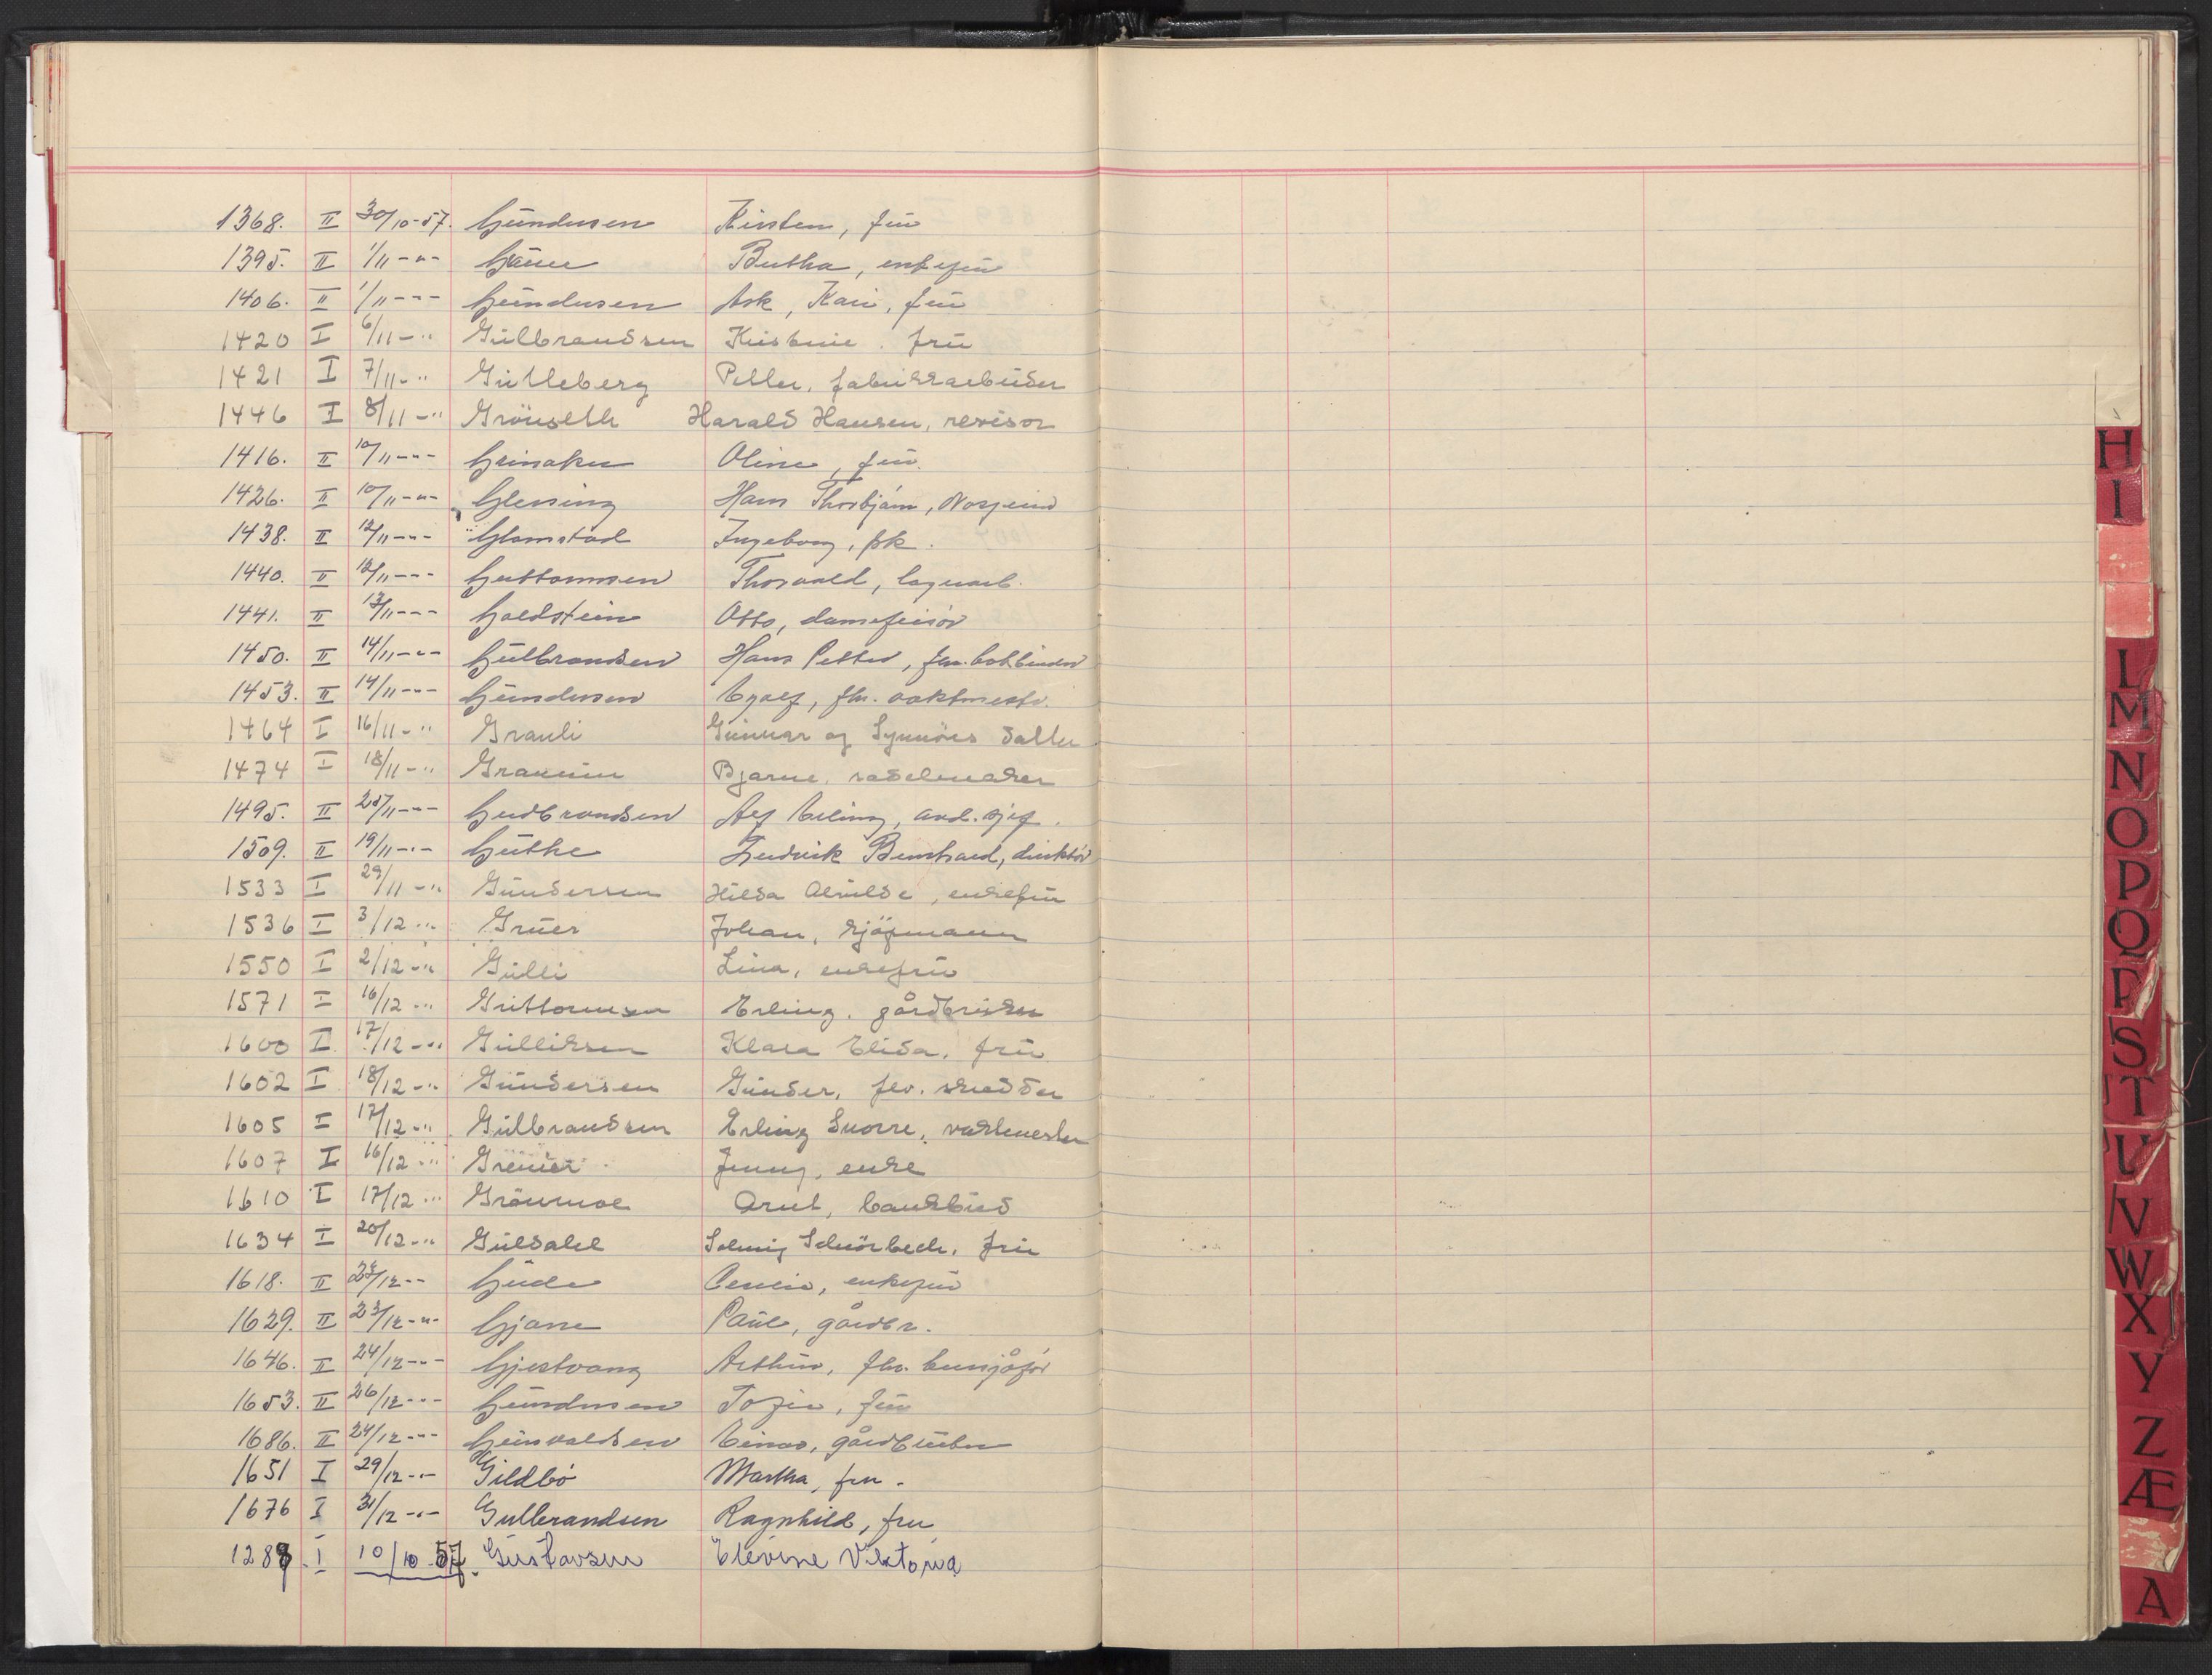 1368. II 30/10-57. Gundersen Kirsten, frü
1395. II 1/11-"- Bertha, enkefrü
1406. II 1/11-"- Gundersen Ask, Kari, frü
1420 I 6/11-" Gülbrandsen Kristine. frü
1421 I 7/11-" Gulleberg Petter, fabrikkarbeider
1446 I 8/11-" Grönseth Harald Hansen, revisor
1416. II 10/11-"- Grinaker Oline, frü.
1426. II 10/11-"- Glessing Hans Thorbjørn,
1438. II 12/11-"- Glomstad Ingeborg, frk.
1440. II 12/11-"- Guttormsen Thorvald, lagerarb.
1441. II 13/11-"- Goldstein Otto, damefrisør
1450. II 14/11-"- Gülbrandsen Hans Petter, fhv. bokbinder
1453. II 14/11-"- Gündersen fhv. vaktmester.
1464 I 16/11-" Grauli Günnar og Synnöves datter
1474 I 18/11-" Bjarne, sadelmaker
1495. II 25/11-"- Gudbrandsen Alf Erling, avd. sjef.
1509. II 19/11-"- Güthe Fredrik Bernhard, direktør
1533 I 29/11-" Gündersen Hilda Alvilde, enkefrü
1536 I 3/12-" Grüer Johan, sjömann
1550 I 2/12-" Gülli Lina, enkefrü
1571 I 16/12-" Guttormsen Erling. gårdbrüker
1600 I 17/12-" Gülliksen Klara Elida. frü
1602 I 18/12-" Gündersen Günder, fhv. skredder
1605 I 17/12-" Gülbrandsen Erling Snorre, vaktmester
1607 I 16/12-" Jenny, enke
1610 I 17/12-" Grönmoe Arnt, bankbüd
1634 I 20/12-" Güldahl Solveig frü
1618. II 23/12-- Güde enkefrü
1629. II 23/12-"- Paül, gårdbr.
1646. II 24/12-"- Gjestvang Arthür, fhv.
1653. II 26/12-"- Gündersen frü
1686. II 24/12-"- Einar, gårdbrüker
1651 I 29/12-"- Gildbø Martha, fru.
1676 I 31/12-"- Gulbrandsen Ragnhild, fru
1289. I 10/10 57. Gustavsen Elevine Viktoria
H
I
L
M
N
O
P
Q
R
S
T
U
V
W
X
Y
Z
Æ
A